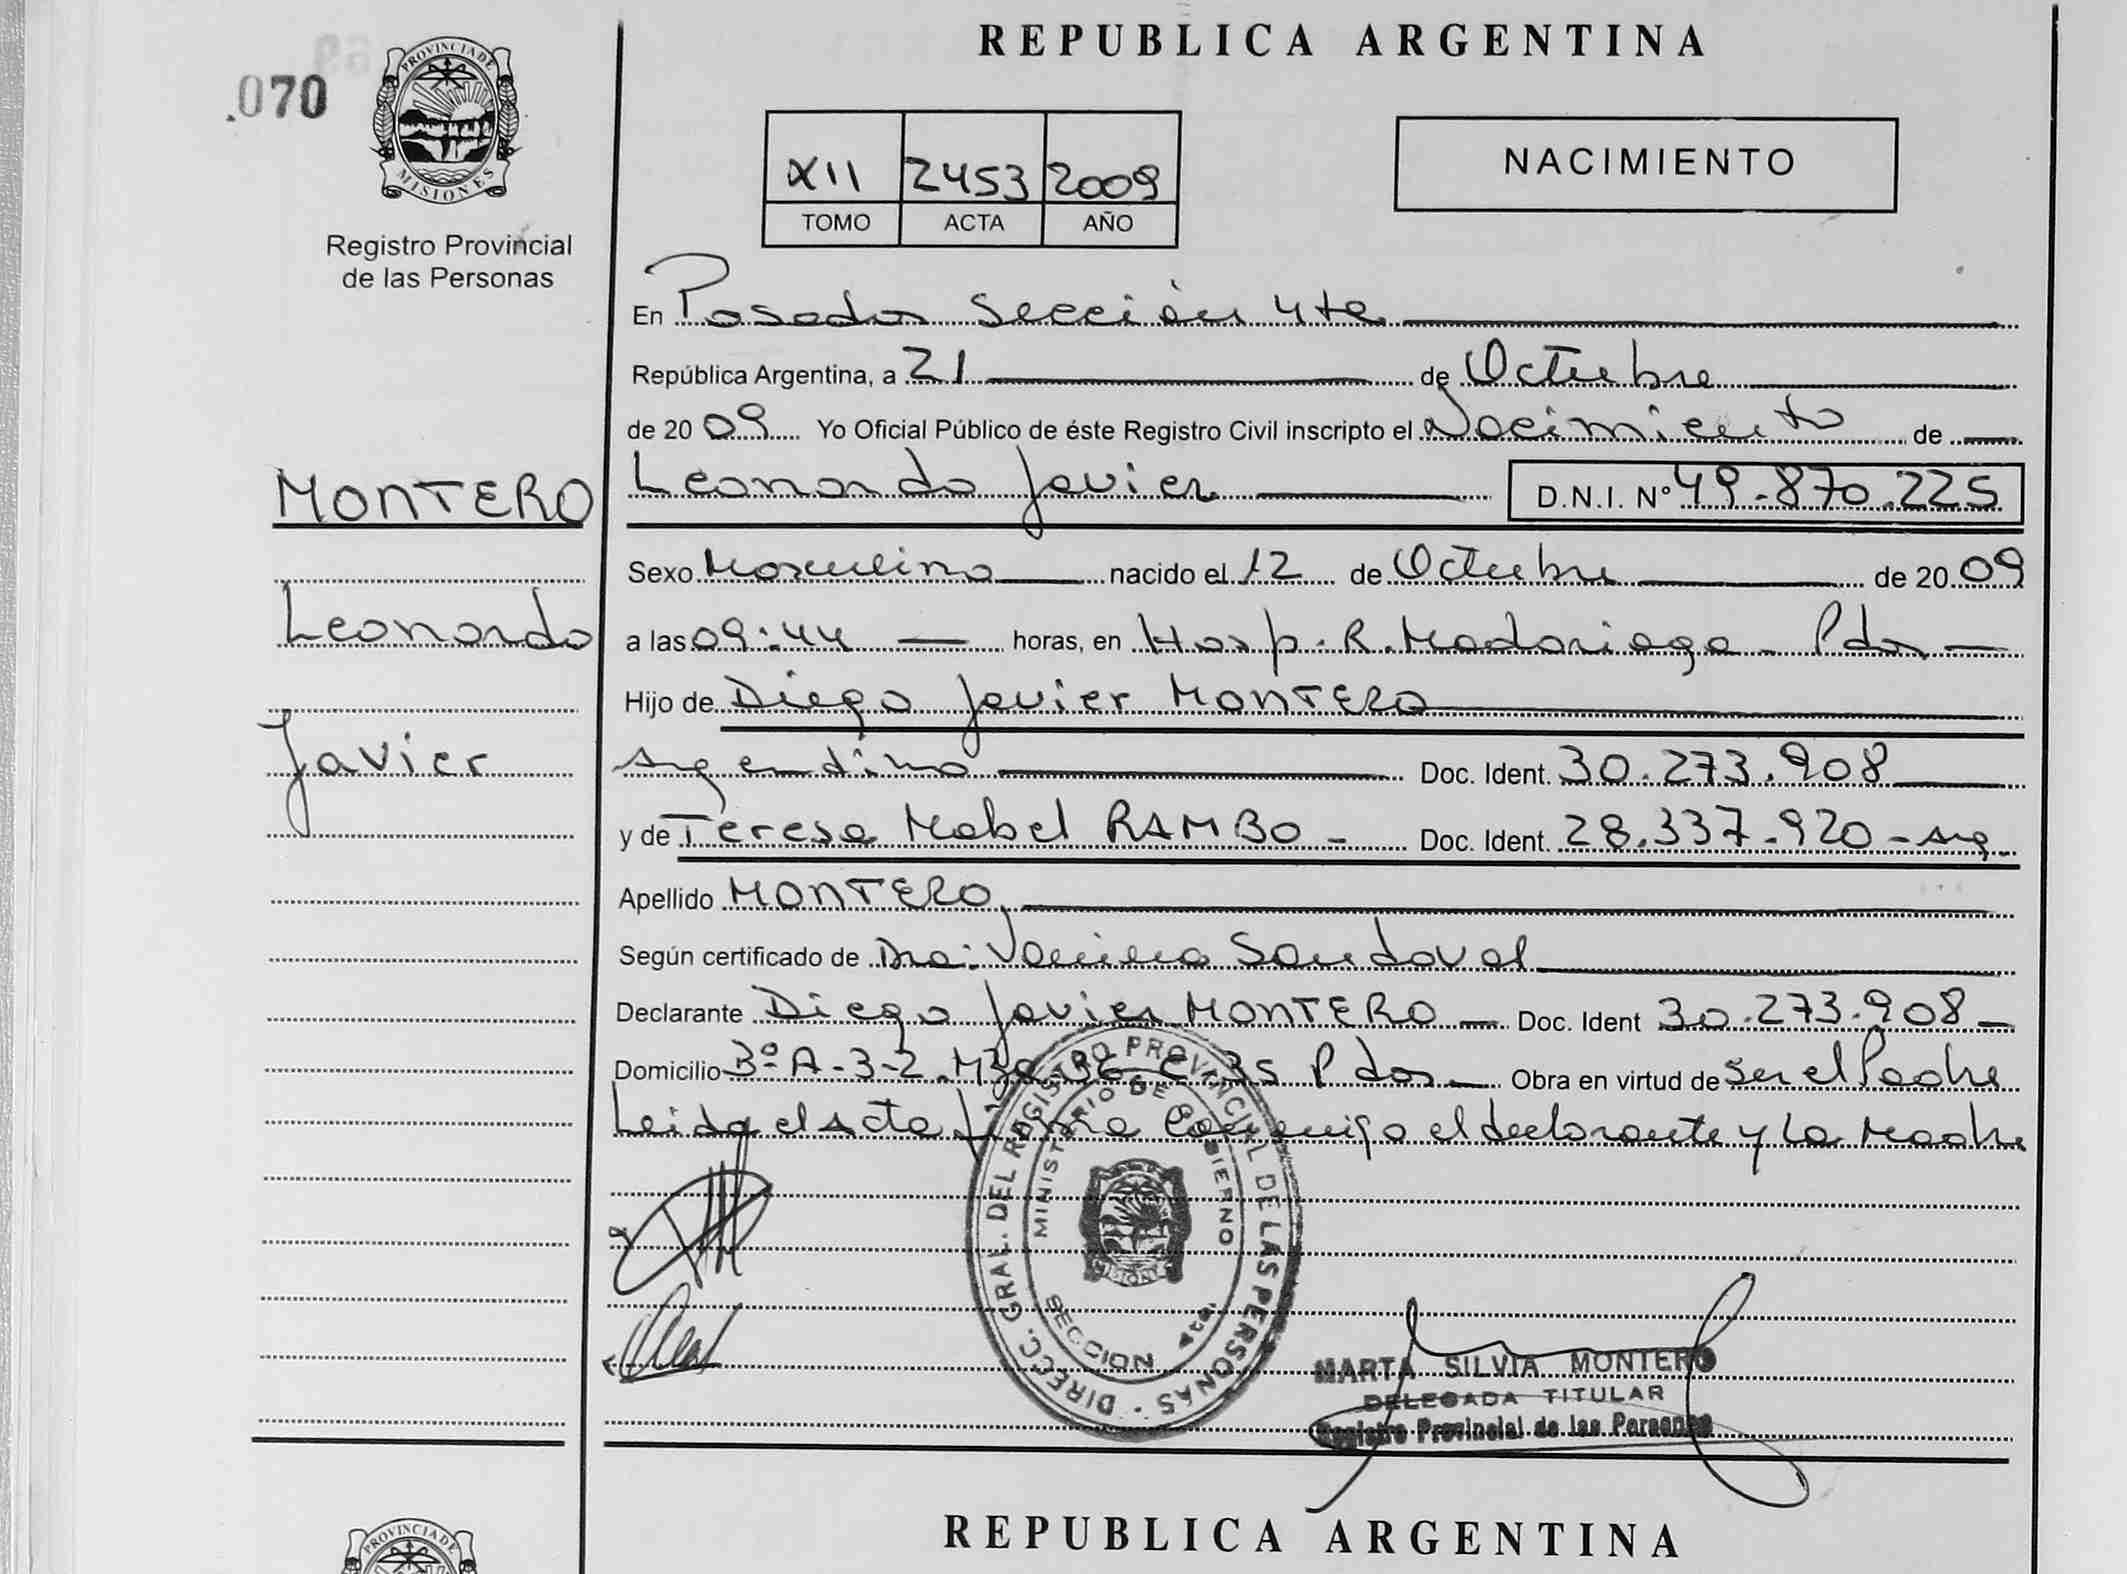 070
PROVINCIA DE
MISIONES
Registro Provincial
de las Personas
REPUBLICA ARGENTINA
XII 2453 2009
TOMO ACTA AÑO
NACIMIENTO
En Posadas Sección 4ta
República Argentina, a 21 de Octubre
de 2009 Yo Oficial Público de éste Registro Civil inscripto el Nacimiento de
Leonardo Javier D.N.I. N° 49.870.225
MONTERO
Leonardo
Javier
Sexo Masculino nacido el 12 de Octubre de 2009
a las 09:44 horas, en Hosp. R. Madariaga - Pdas
Hijo de Diego Javier MONTERO
Argentino Doc. Ident. 30.273.908
y de Teresa Mabel RAMBO - Doc. Ident. 28.337.920 - Arg.
Apellido MONTERO
Según certificado de Dra: Vanina Sandoval
Declarante Diego Javier MONTERO Doc. Ident 30.273.908
Domicilio 3º A-3-2. Mza 36 C. 35 Pdas Obra en virtud de Ser el Padre
Leida el Acta firma Conmigo el declarante y La Madre
DIRECC. GRAL. DEL REGISTRO PROVINCIAL DE LAS PERSONAS
MINISTERIO DE GOBIERNO
MISIONES
SECCION 4ta.
MARTA SILVIA MONTERO
DELEGADA TITULAR
Registro Provincial de las Personas
PROVINCIA DE
REPUBLICA ARGENTINA